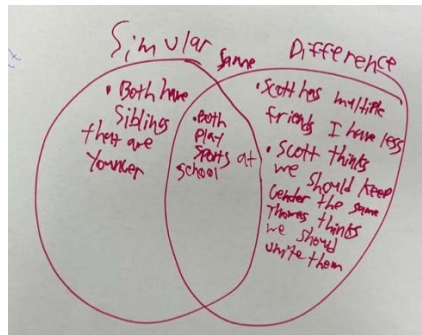 Simular
Same
Difference
• Both have
Siblings
that are
Younger
• Both
Play
Sports at
School
• Scott has multiple
friends I have less
• Scott thinks
we should keep
Gender the same
Thomas thinks
we should
unite them